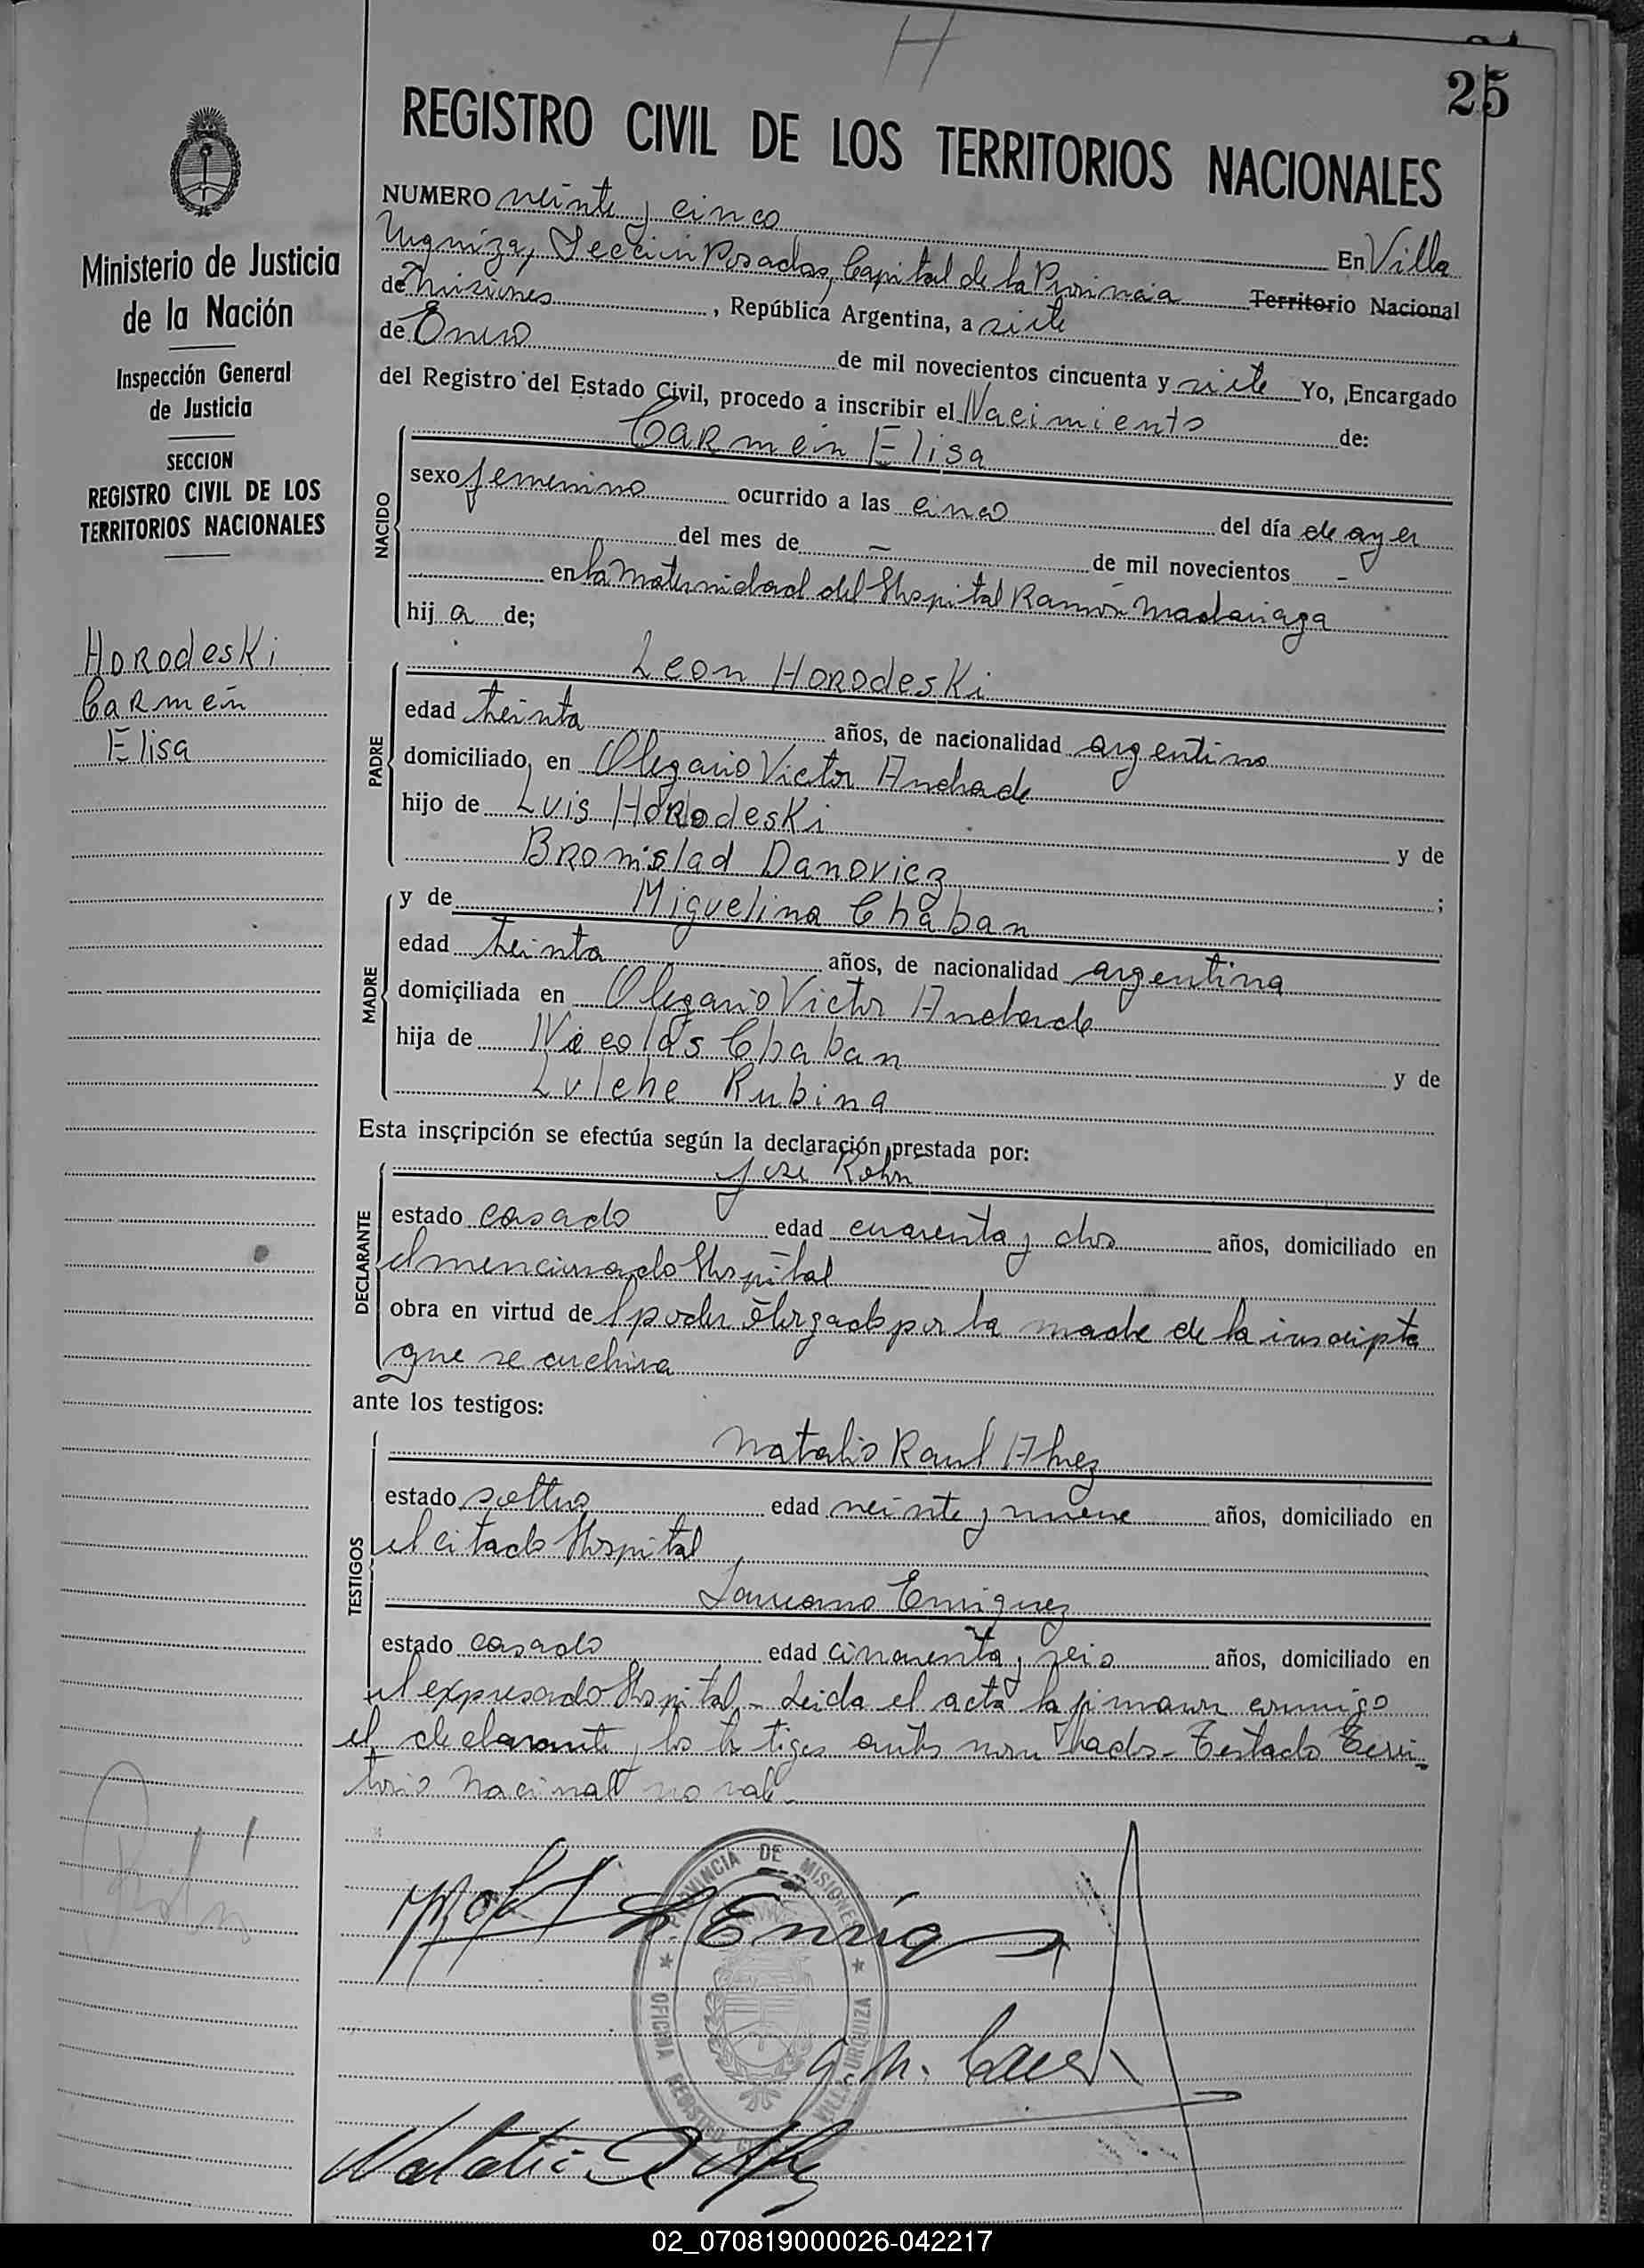 H
25
REGISTRO CIVIL DE LOS TERRITORIOS NACIONALES
Ministerio de Justicia
de la Nación
Inspección General
de Justicia
SECCION
REGISTRO CIVIL DE LOS
TERRITORIOS NACIONALES
Horodeski
Carmen
Elisa
NUMERO veinte y cinco En Villa
Urquiza, Sección Posadas, Capital de la Provincia Territorio Nacional
de Misiones, República Argentina, a siete
de Enero de mil novecientos cincuenta y siete Yo, Encargado
del Registro del Estado Civil, procedo a inscribir el Nacimiento de:
NACIDO
Carmen Elisa
sexo femenino ocurrido a las cinco del día de ayer
del mes de — de mil novecientos -
en la Maternidad del Hospital Ramón Madariaga
hij a de;
PADRE
Leon Horodeski
edad treinta años, de nacionalidad argentino
domiciliado en Olegario Victor Andrade
hijo de Luis Horodeski y de
Bronislad Danovicz ;
MADRE
y de Miguelina Chaban
edad treinta años, de nacionalidad argentina
domiciliada en Olegario Victor Andrade
hija de Nicolás Chaban y de
Lulche Rubina
Esta inscripción se efectúa según la declaración prestada por:
DECLARANTE
José Rohn
estado casado edad cuarenta y dos años, domiciliado en
el mencionado Hospital
obra en virtud del poder otorgado por la madre de la inscripta
que se archiva
ante los testigos:
TESTIGOS
Natalio Raul
estado soltero edad veinte y nueve años, domiciliado en
el citado Hospital
Laureano Enriquez
estado casado edad cincuenta y seis años, domiciliado en
el expresado Hospital - Leida el acta la firmaron conmigo
el declarante y los testigos antes nombrados - Testado Terri-
torio Nacional no vale -
PROVINCIA DE MISIONES
OFICINA REGISTRO CIVIL VILLA URQUIZA
L. Enriq
Natalio R
02_070819000026-042217